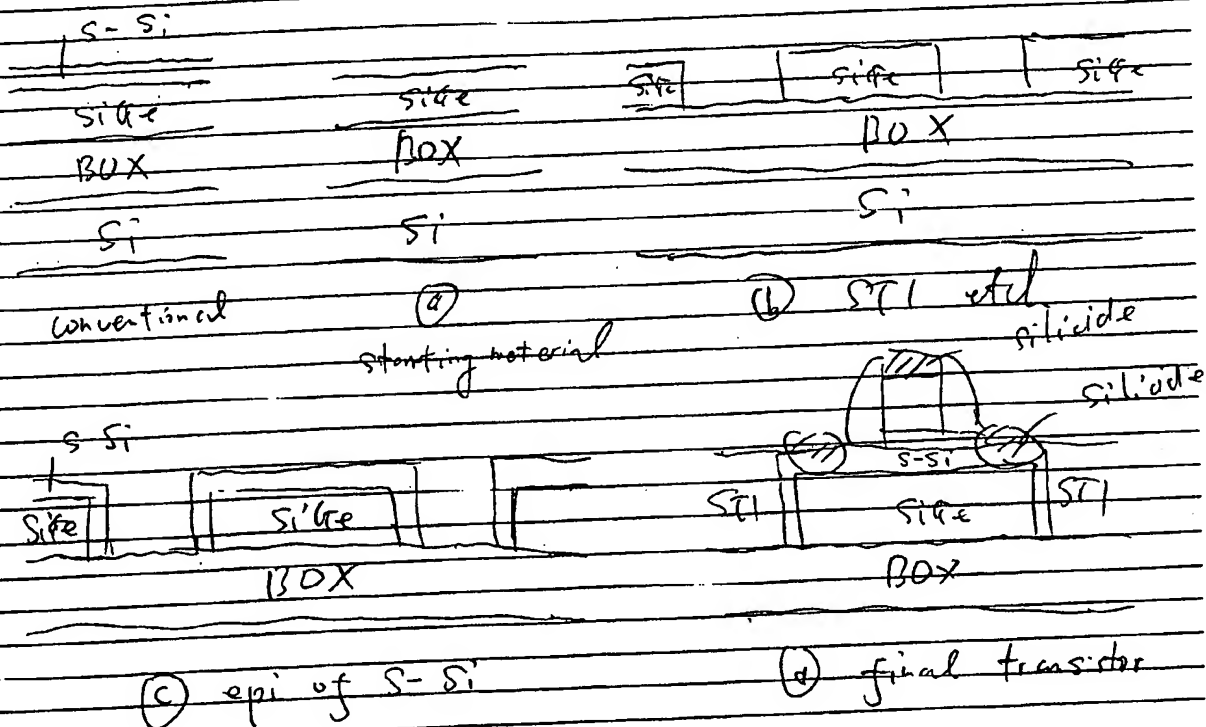 s-Si
SiGe
BOX
Si
conventional
SiGe
BOX
Si
(a)
starting material
SiGe SiGe SiGe
BOX
Si
(b) STI etch
s-Si
SiGe SiGe
BOX
(c) epi of s-Si
silicide
silicide
s-Si
STI SiGe STI
BOX
(d) final transistor